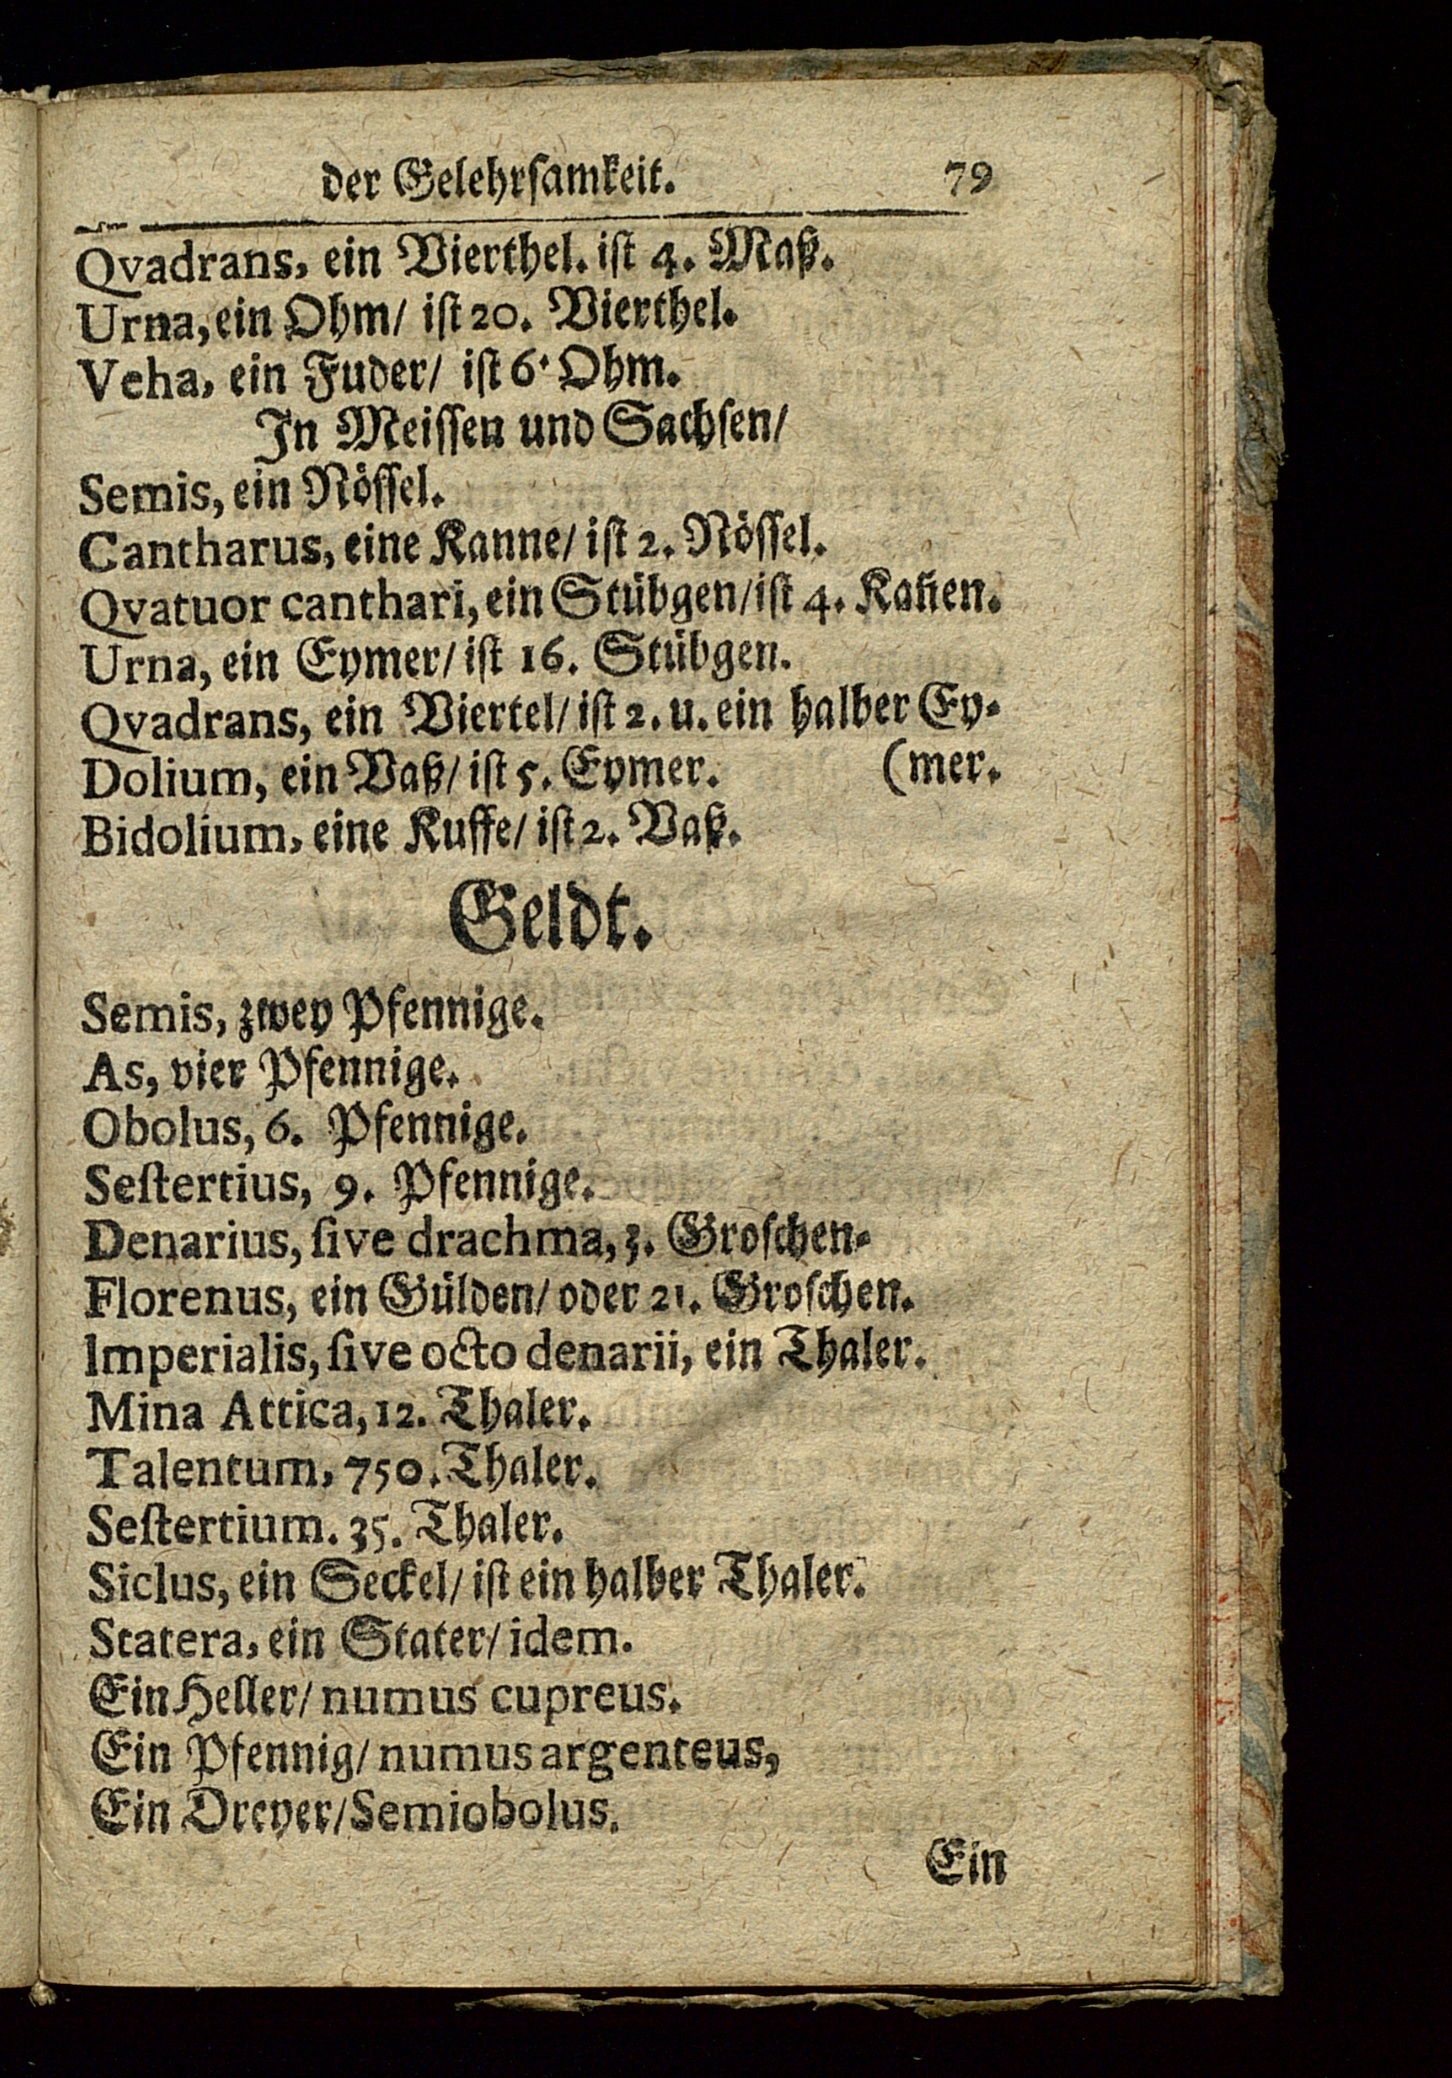 der Gelehrſamkeit. 79
Qvadrans, ein Vierthel. iſt 4. Maß.
Urna, ein Ohm/ iſt 20. Vierthel.
Veha, ein Fuder/ iſt 6. Ohm.
In Meiſſen und Sachſen/
Semis, ein Nöſſel.
Cantharus, eine Kanne/ iſt 2. Nöſſel.
Qvatuor canthari, ein Stübgen/ iſt 4. Kan̄en.
Urna, ein Eymer/ iſt 16. Stübgen.
Qvadrans, ein Viertel/ iſt 2. u. ein halber Ey-
Dolium, ein Vaß/ iſt 5. Eymer. (mer.
Bidolium, eine Kuffe/ iſt 2. Vaß.
Geldt.
Semis, zwey Pfennige.
As, vier Pfennige.
Obolus, 6. Pfennige.
Seſtertius, 9. Pfennige.
Denarius, ſive drachma, 3. Groſchen-
Florenus, ein Gülden/ oder 21. Groſchen.
Imperialis, ſive octo denarii, ein Thaler.
Mina Attica, 12. Thaler.
Talentum, 750. Thaler.
Seſtertium. 35. Thaler.
Siclus, ein Seckel/ iſt ein halber Thaler.
Statera, ein Stater/ idem.
Ein Heller/ numus cupreus.
Ein Pfennig/ numus argenteus,
Ein Dreyer/ Semiobolus.
Ein